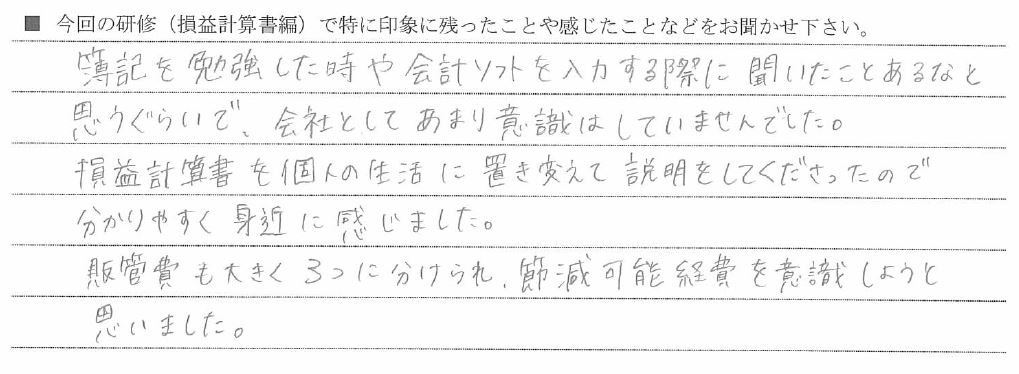 ■ 今回の研修（損益計算書編）で特に印象に残ったことや感じたことなどをお聞かせ下さい。
簿記を勉強した時や会計ソフトを入力する際に聞いたことあるなと
思うぐらいで、会社としてあまり意識はしていませんでした。
損益計算書を個人の生活に置き変えて説明をしてくださったので
分かりやすく身近に感じました。
販管費も大きく3つに分けられ、節減可能経費を意識しようと
思いました。